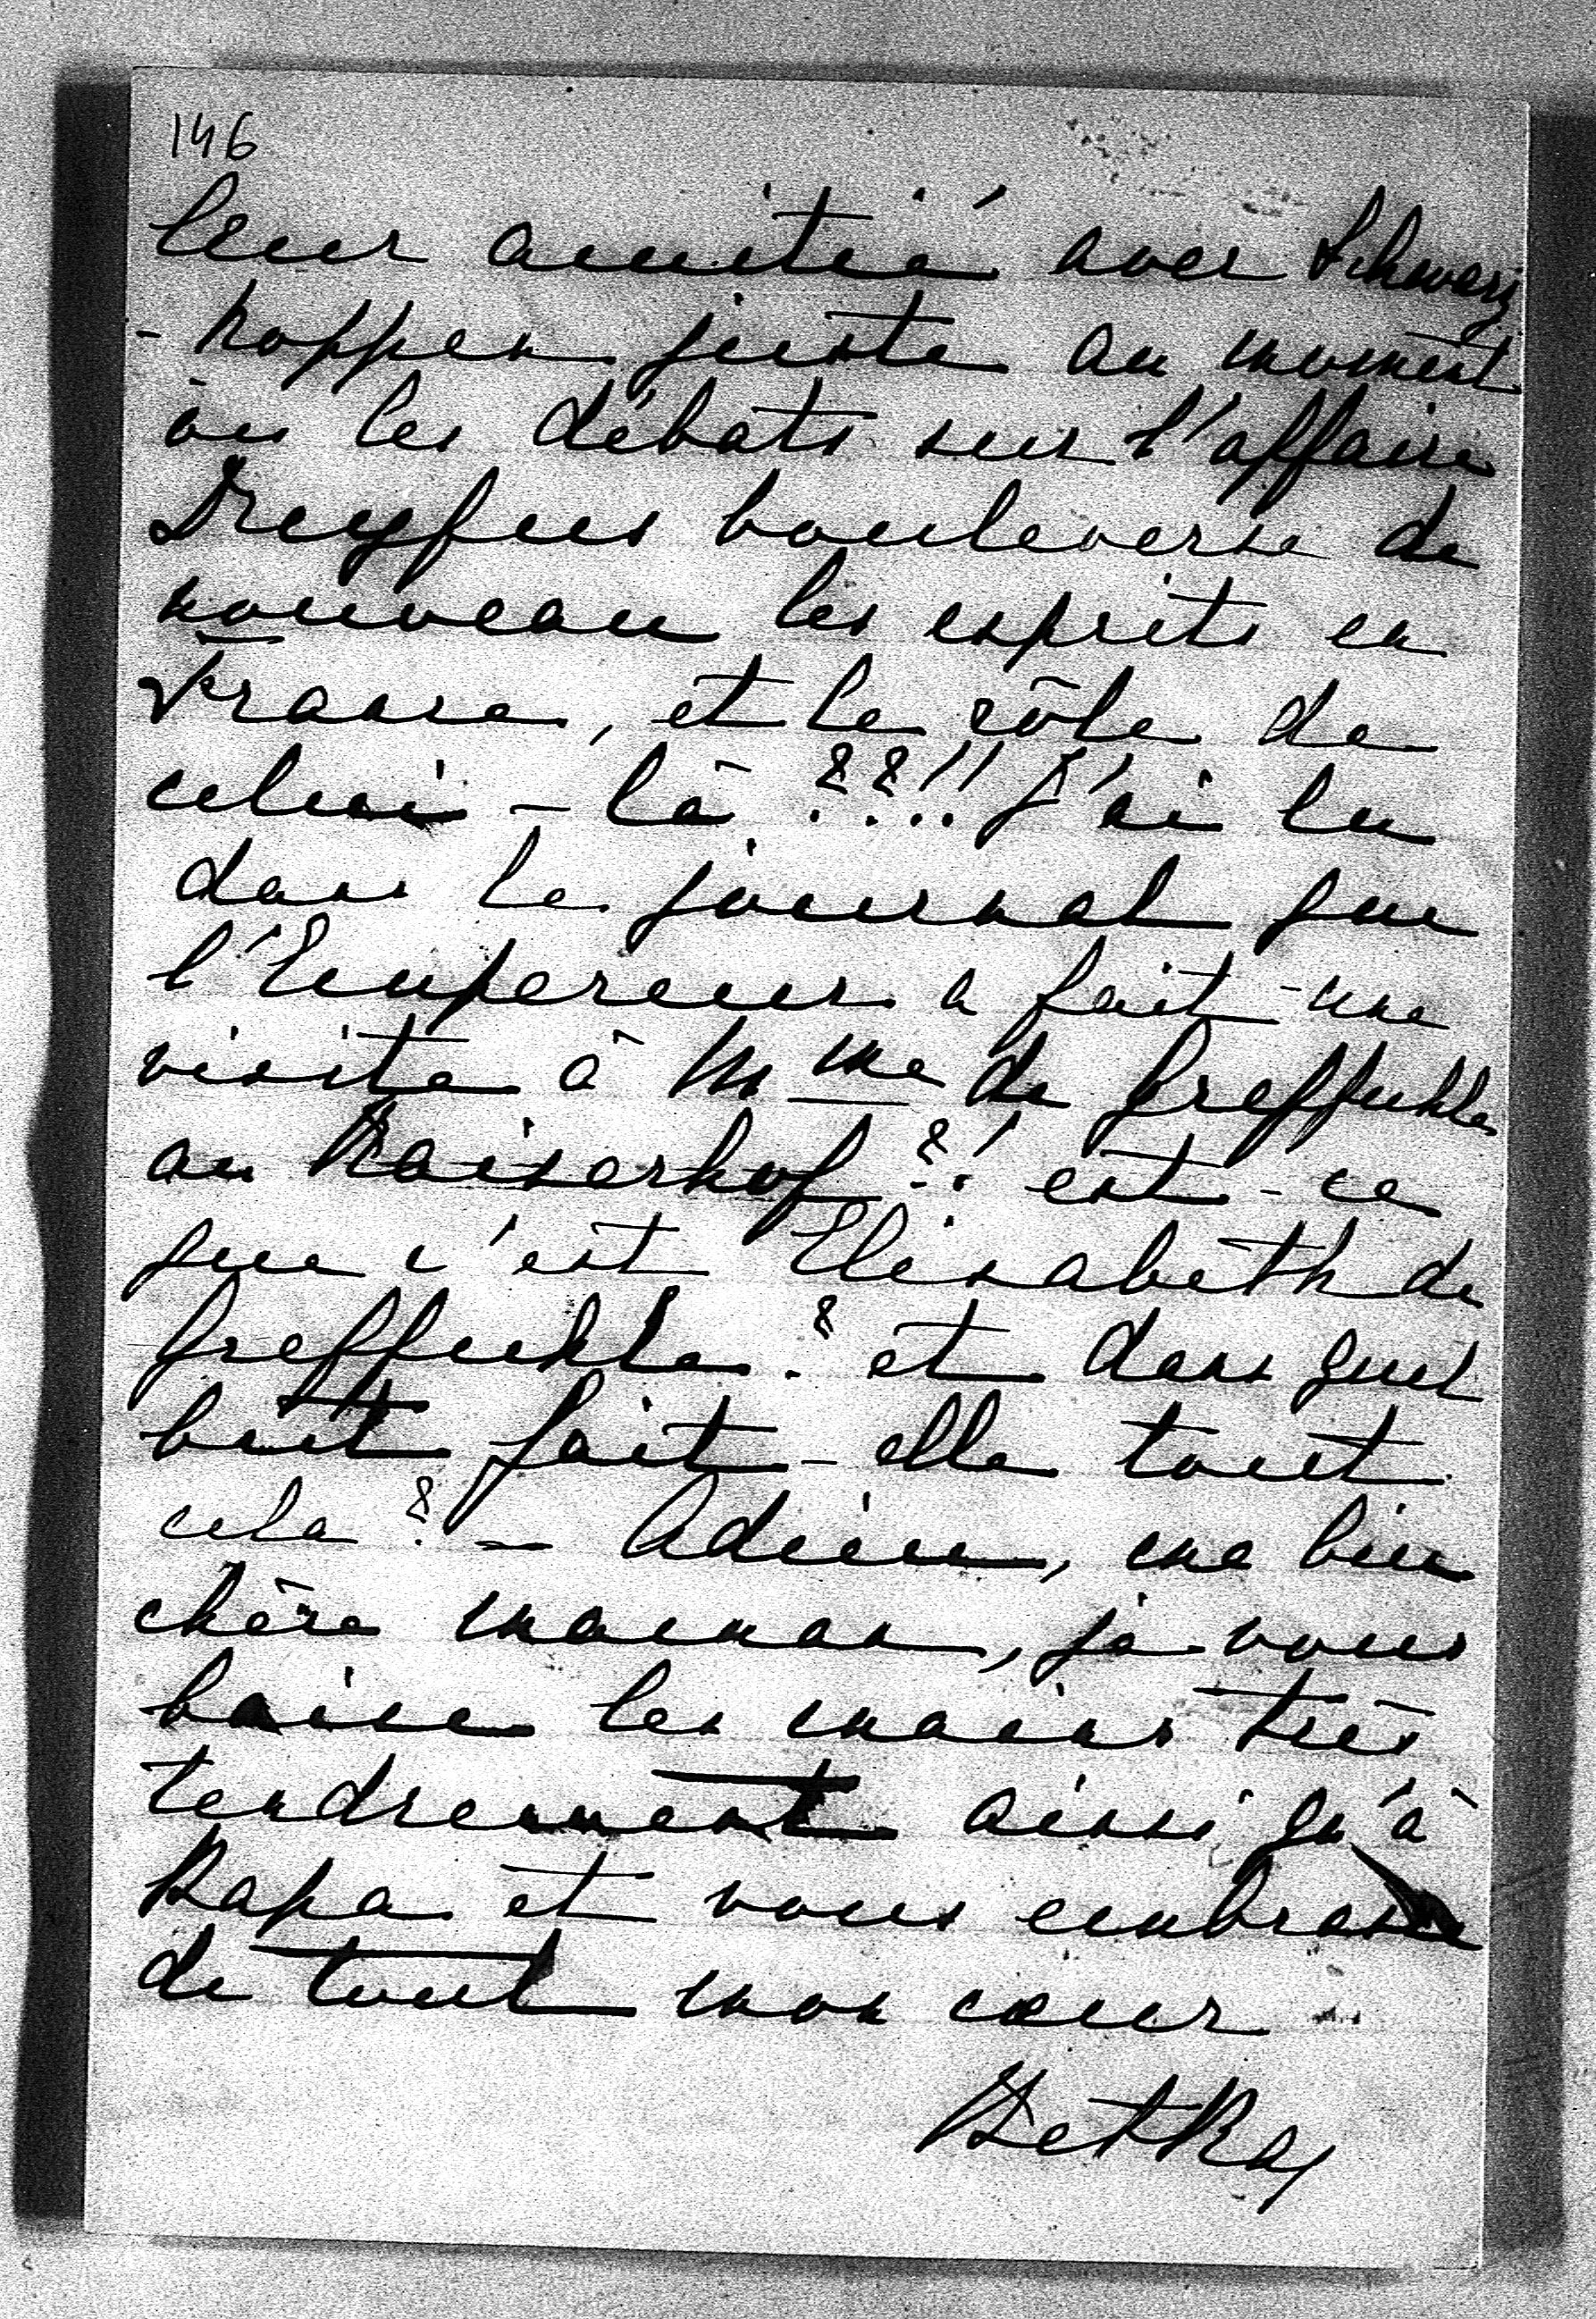 146
leur amitié avec Schwarz
-koppen juste au moment
où les débats sur l'affaire
Dreyfus bouleverse de
nouveau les esprits en
France, et le rôle de
celui-là ??!! J'ai lu
dans le journal que
l'Empereur a fait une
visite à Mme de Greffuhle
au Kaiserhof ?! est-ce
que c'est Elisabeth de
Greffuhle ? et dans quel
but fait-elle tout
cela ? – Adieu, ma bien
chère maman, je vous
baise les mains très
tendrement ainsi qu'à
Papa et vous embrasse
de tout mon cœur
Betka